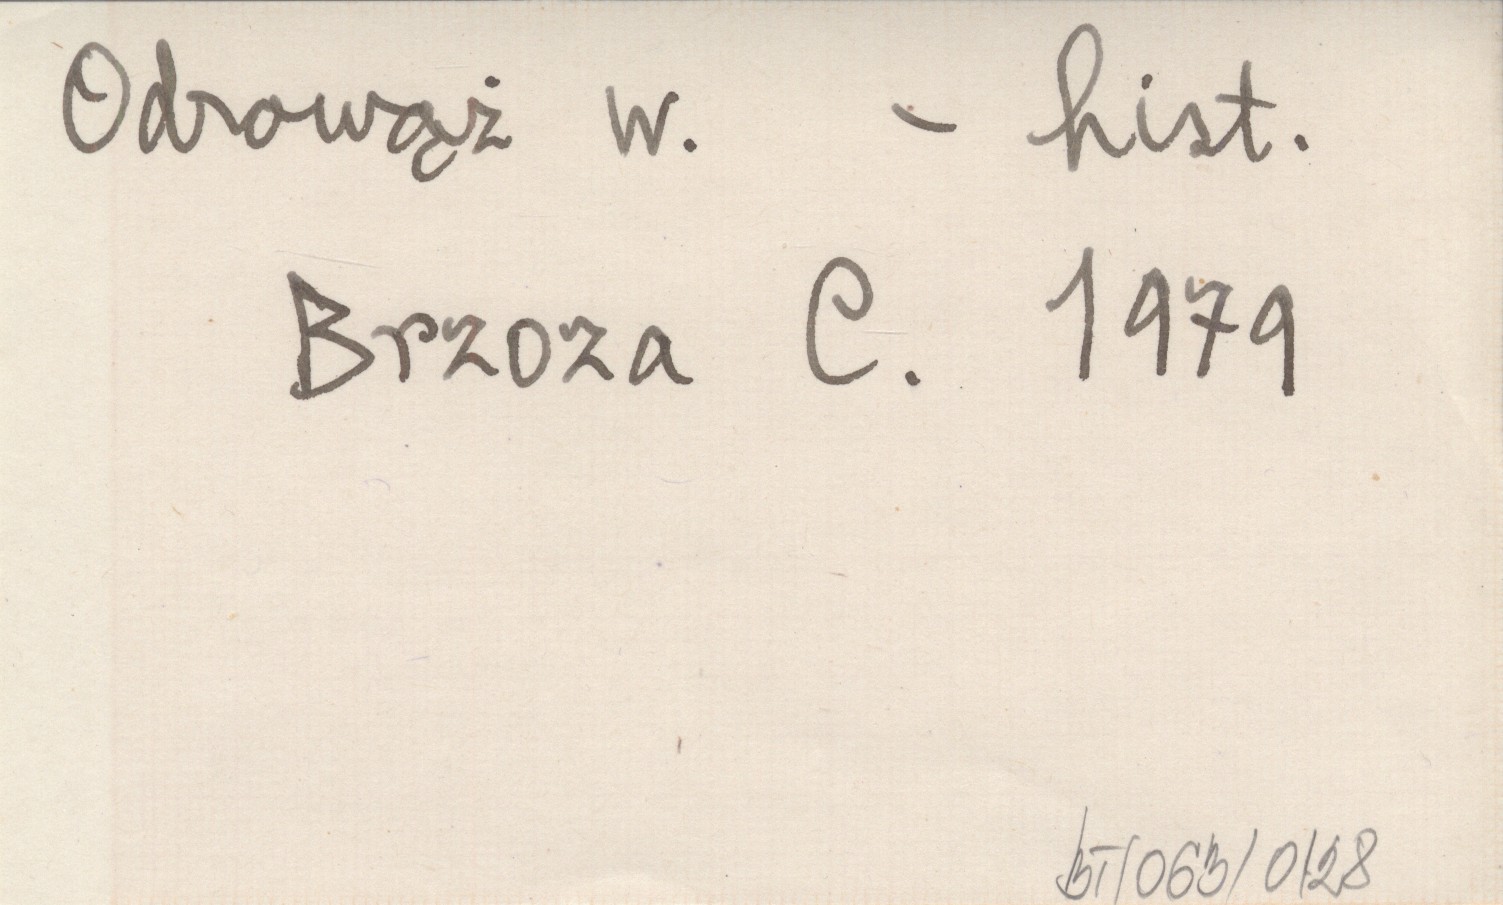 Odrowąż w. - hist.
Brzoza C. 1979
BT/063/0128